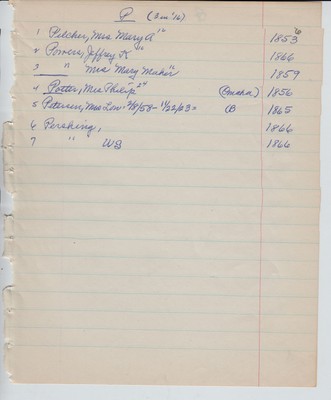 P (Dec '16)
1 Pilcher, Mrs Mary A "" 1853
2 Powers, Jeffrey K "" 1866
3 " Mrs Mary Maher 1859
4 Potter, Mrs Philip "" (Omaha) 1856
5 Petersen, Mrs Lew- 2/11/58- 1/22/63= (B 1865
6 Pershing, 1866
7 " " WB 1866